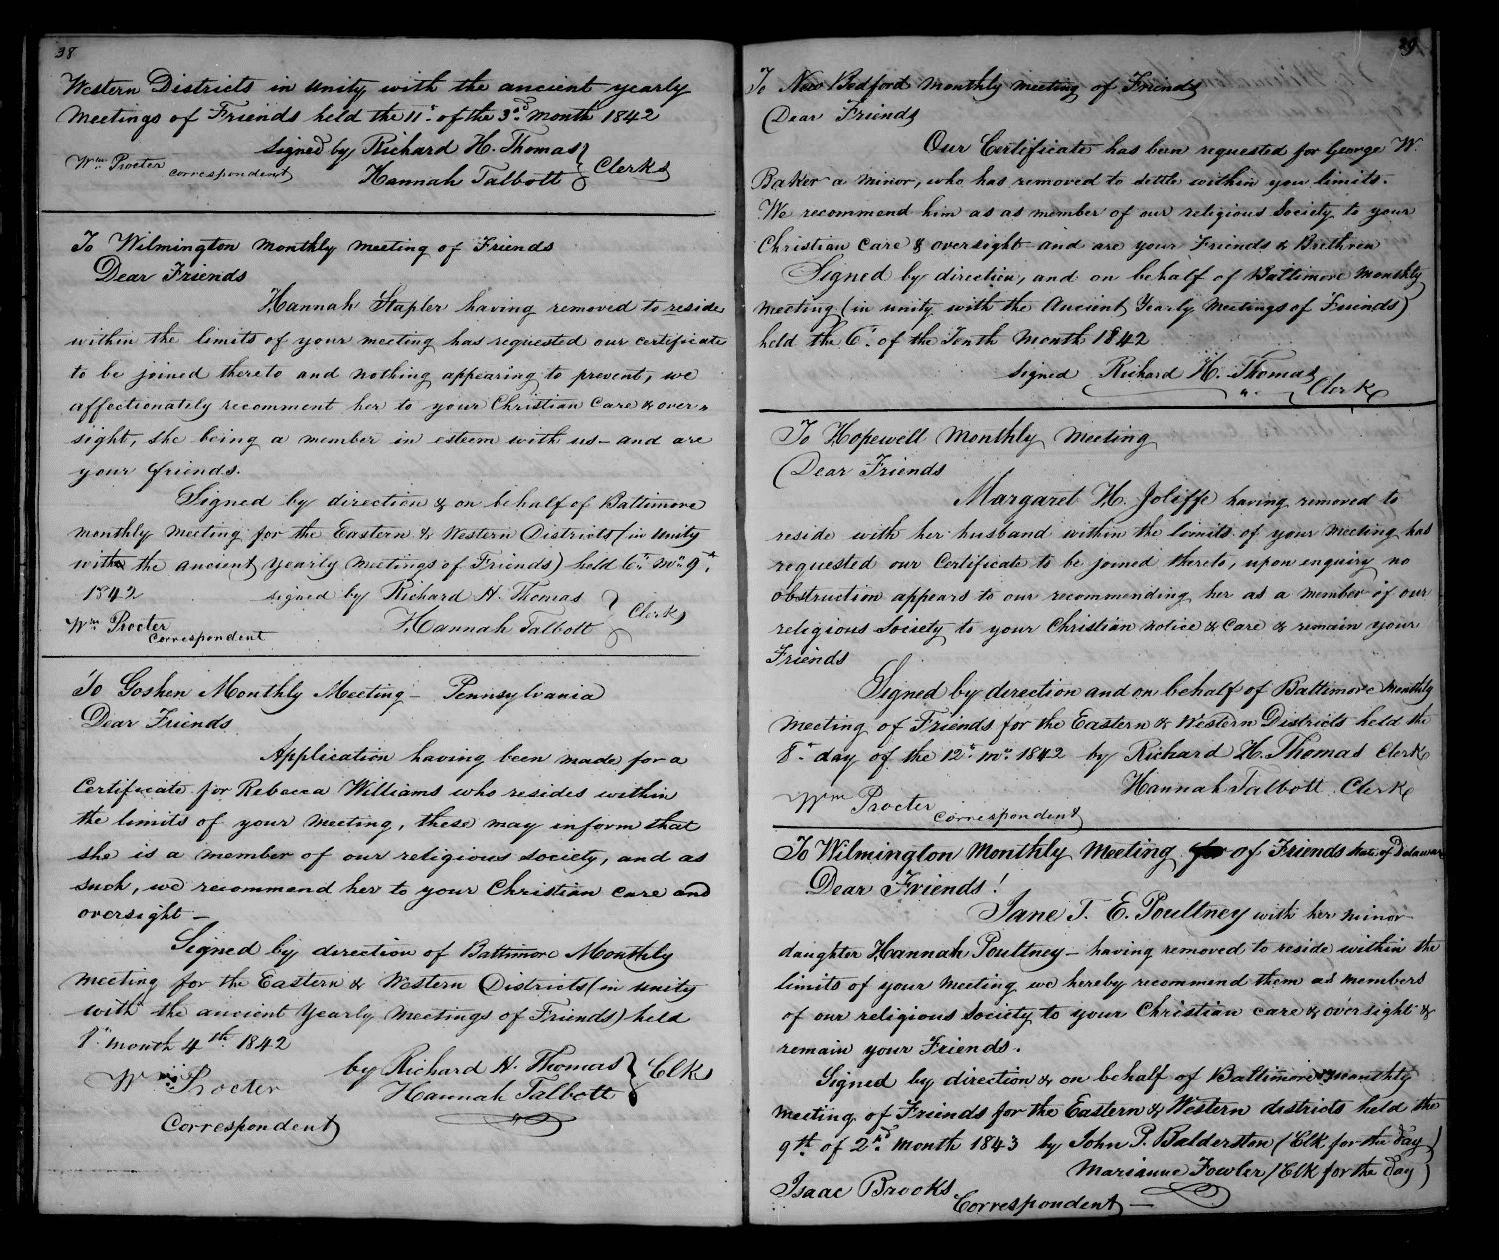 38
Western Districts in unity with the ancient yearly
Meetings of Friends held the 11th of the 3rd month 1842
signed by Richard H. Thomas } Clerks
Wm Procter correspondent Hannah Talbott
To Wilmington Monthly Meeting of Friends
Dear Friends
Hannah Stapler having removed to reside
within the limits of your meeting has requested our certificate
to be joined thereto and nothing appearing to prevent, we
affectionately recomment her to your Christian Care & over-
sight, she being a member in esteem with us – and are
your friends.
Signed by direction & on behalf of Baltimore
monthly meeting for the Eastern & Western Districts (in unity
with the ancient yearly meetings of Friends) held 6th mo 9th
1842 signed by Richard H. Thomas } Clerks
Wm Procter Hannah Talbott
correspondent
To Goshen Monthly Meeting – Pennsylvania
Dear Friends
Application having been made for a
Certificate for Rebecca Williams who resides within
the limits of your meeting, these may inform that
she is a member of our religious society, and as
such, we recommend her to your Christian care and
oversight –
Signed by direction of Baltimore Monthly
meeting for the Eastern & Western Districts (in unity
with the ancient yearly meetings of Friends) held
8th month 4th 1842
by Richard H. Thomas } Clks
Wm Procter Hannah Talbott
Correspondent
39
To New Bedford Monthly Meeting of Friends
Dear Friends
Our Certificate has been requested for George W.
Baker a minor, who has removed to settle within your limits.
We recommend him as as member of our religious Society to your
Christian Care & oversight and are your Friends & Brethren
Signed by direction, and on behalf of Baltimore Monthly
meeting (in unity with the Ancient Yearly Meetings of Friends)
held the 6th of the Tenth Month 1842
signed Richard H. Thomas
Clerk
To Hopewell Monthly Meeting
Dear Friends
Margaret H. Joliffe having removed to
reside with her husband within the limits of your Meeting has
requested our Certificate to be joined thereto, upon enquiry no
obstruction appears to our recommending her as a member of our
religious Society to your Christian notice & Care & remain your
Friends
Signed by direction and on behalf of Baltimore Monthly
Meeting of Friends for the Eastern & Western Districts held the
8th day of the 12th mo 1842 by Richard H. Thomas Clerk
Hannah Talbott Clerk
Wm Procter
correspondent
To Wilmington Monthly Meeting of Friends State of Delaware
Dear Friends!
Jane T. E. Poultney with her minor
daughter Hannah Poultney – having removed to reside within the
limits of your Meeting we hereby recommend them as members
of our religious Society to your Christian care & oversight &
remain your Friends.
Signed by direction & on behalf of Baltimore Monthly
Meeting of Friends for the Eastern & Western districts held the
9th of 2nd Month 1843 by John P. Balderston / Clk for the day
Marianne Fowler / Clk for the day
Isaac Brooks
Correspondent –